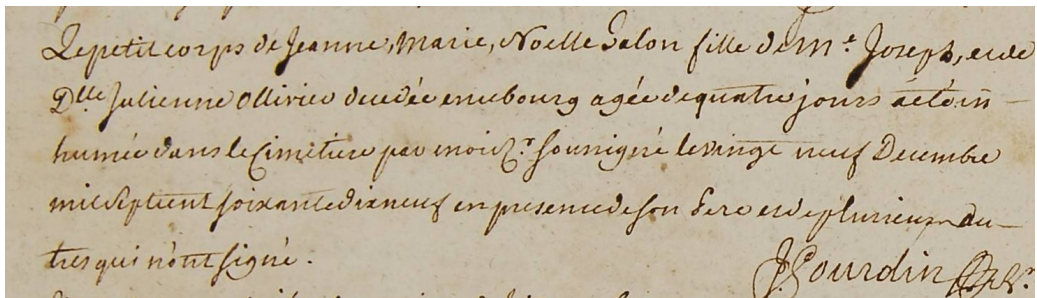 Le petit corps de Jeanne, Marie, Noelle Galon fille de Me Joseph, et de
Dlle Julienne Ollivier decedée en ce bourg agée de quatre jours a été in-
humée dans le Cimitiere par moi Cr soussigné le vingt neuf Decembre
mil Sept cent soixante dix neuf en presence de son Pere et de plusieurs au-
tres qui n'ont signé.
J. Gourdin